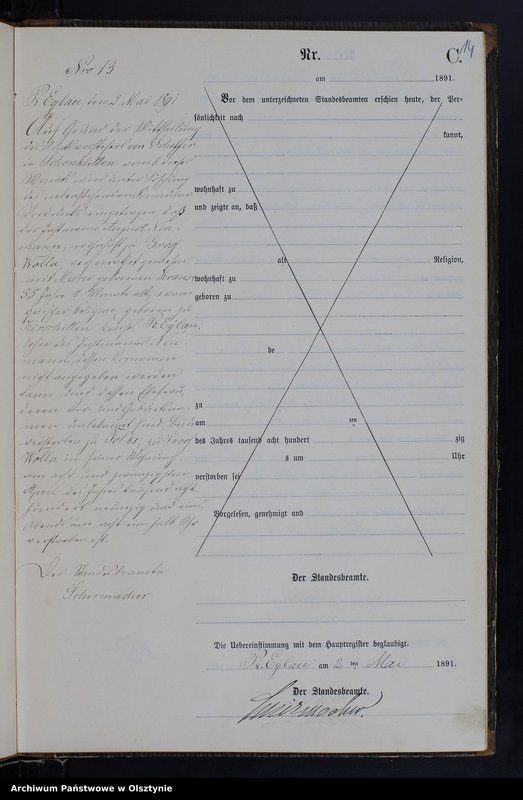 14
Nro 13
Pr. Eylau, den 2. Mai 1891
Auf Grund der Mittheilung
des Amtsvorstehers von
in vom
Monats wird unter Löschung
des nebenstehenden
Vordrucks eingetragen, daß
der Instmann August Neu-
mann, wohnhaft zu Groß
Wolla verheirathet gewesen
mit Marie geborenen
35 Jahre 1 Monate alt, evan-
gelischer Religion, geboren zu
Kreises Pr. Eylau,
Sohn des Instmanns Neu-
mann, dessen Vornamen
nicht angegeben werden
kann und dessen Ehefrau,
deren Vor- und Geburtsna-
men unbekannt sind, beide
verstorben zu zu Groß
Wolla in seiner Wohnung
am acht und zwanzigsten
April des Jahres tausend acht
hundert neunzig und eins
Abends um acht ein halb Uhr
verstorben ist.
Der Standesbeamte
Schirmacher
Nr.
C.
am 1891.
Vor dem unterzeichneten Standesbeamten erschien heute, der Per-
sönlichkeit nach
kannt,
wohnhaft zu
und zeigte an, daß
alt Religion,
wohnhaft zu
geboren zu
de
zu
am ten
des Jahres tausend acht hundert zig
s um Uhr
verstorben sei
Vorgelesen, genehmigt und
Der Standesbeamte.
Die Uebereinstimmung mit dem Hauptregister beglaubigt.
Pr. Eylau am 2 ten Mai 1891.
Der Standesbeamte.
Schirmacher.
Archiwum Państwowe w Olsztynie